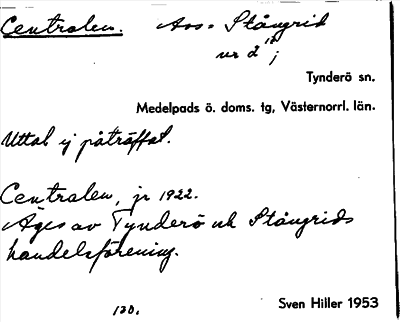 Centralen. Avs. Stångrid
nr 2
Tynderö sn.
Medelpads ö. doms. tg, Västernorrl. län.
Uttal ej påträffat.
Centralen, jr 1922.
Äges av Tynderö och Stångrids
handelsförening.
130. Sven Hiller 1953